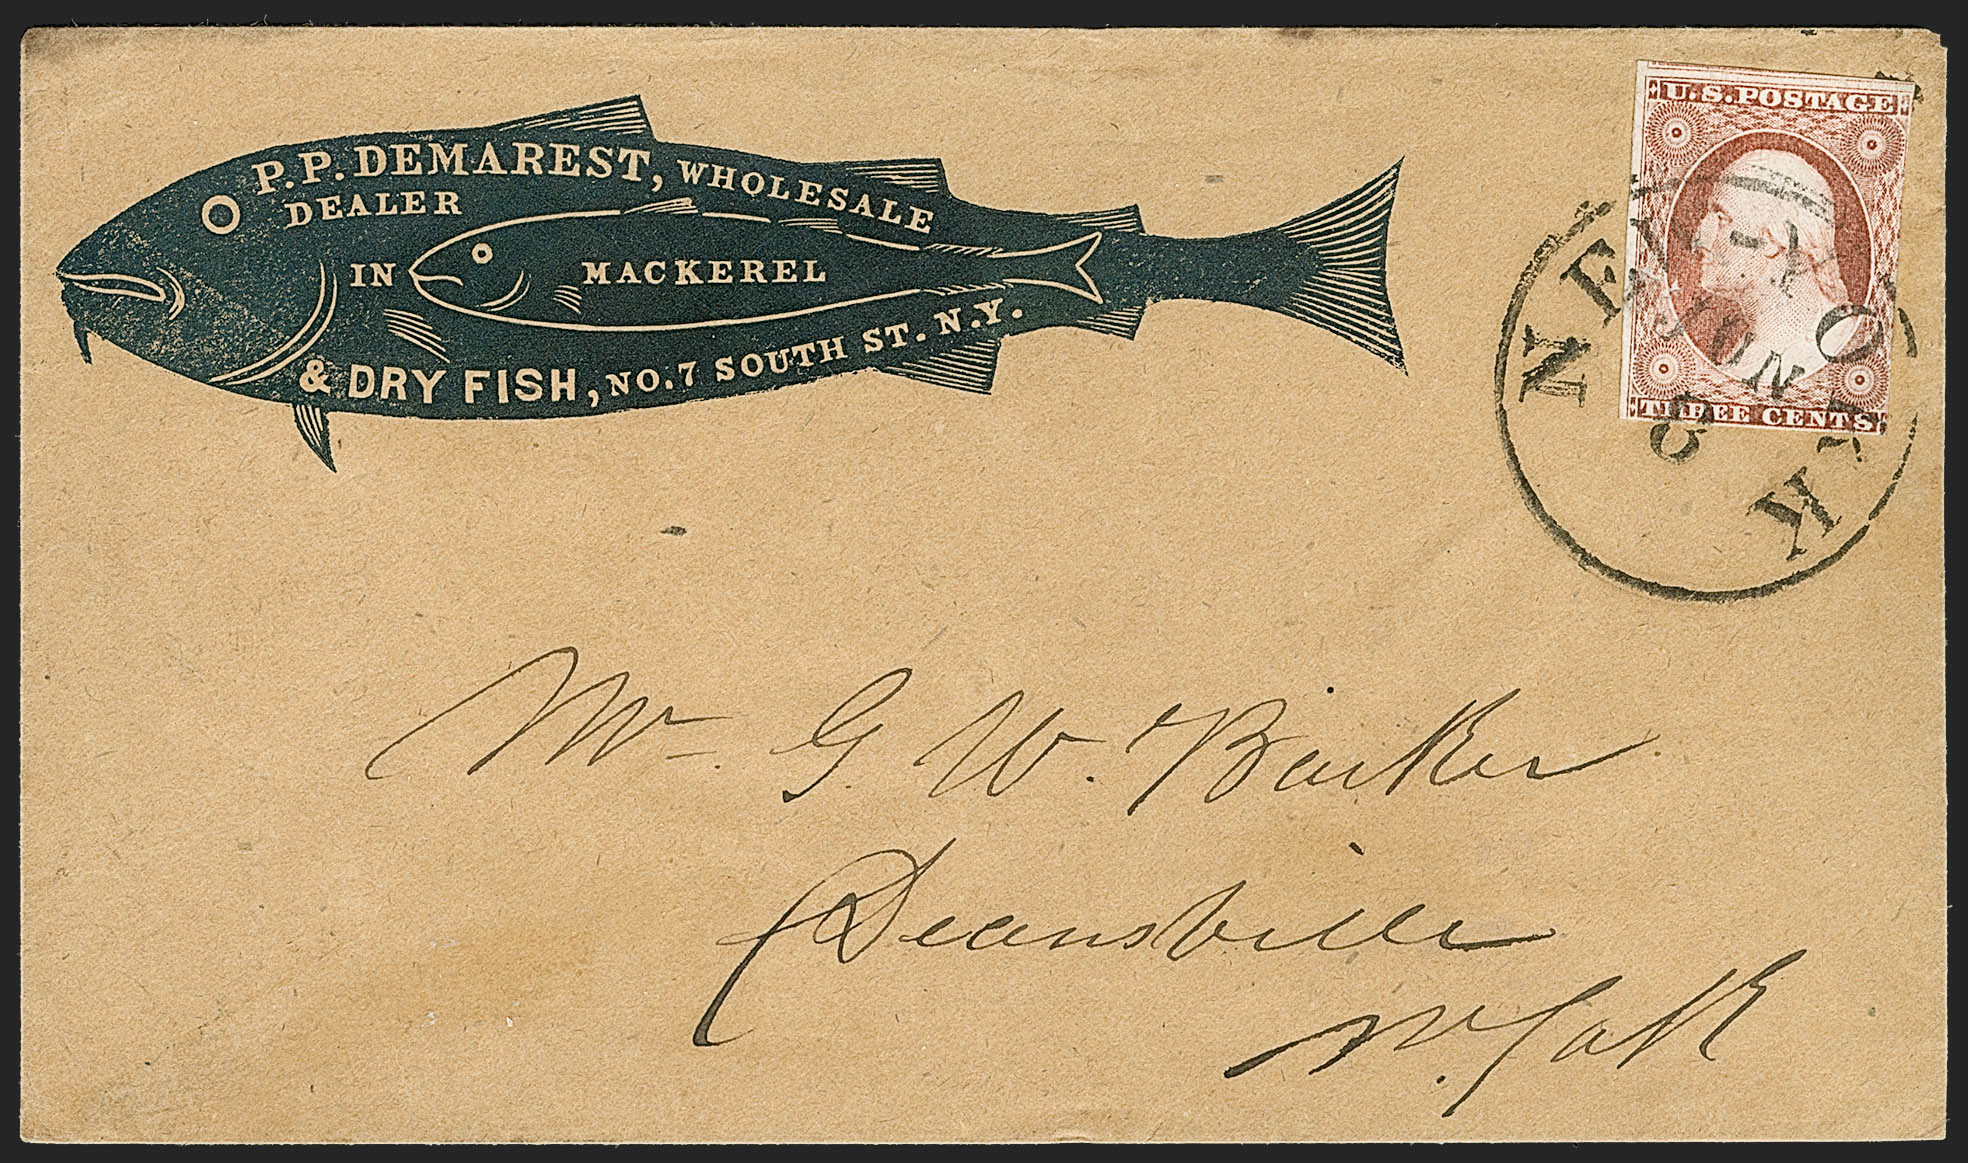 P.P. DEMAREST, WHOLESALE
DEALER
IN MACKEREL
& DRY FISH, NO. 7 SOUTH ST. N.Y.
U.S. POSTAGE
THREE CENTS
NEW-YORK
NOV
8
Mr. G. W. Barker
Deansville
N. York